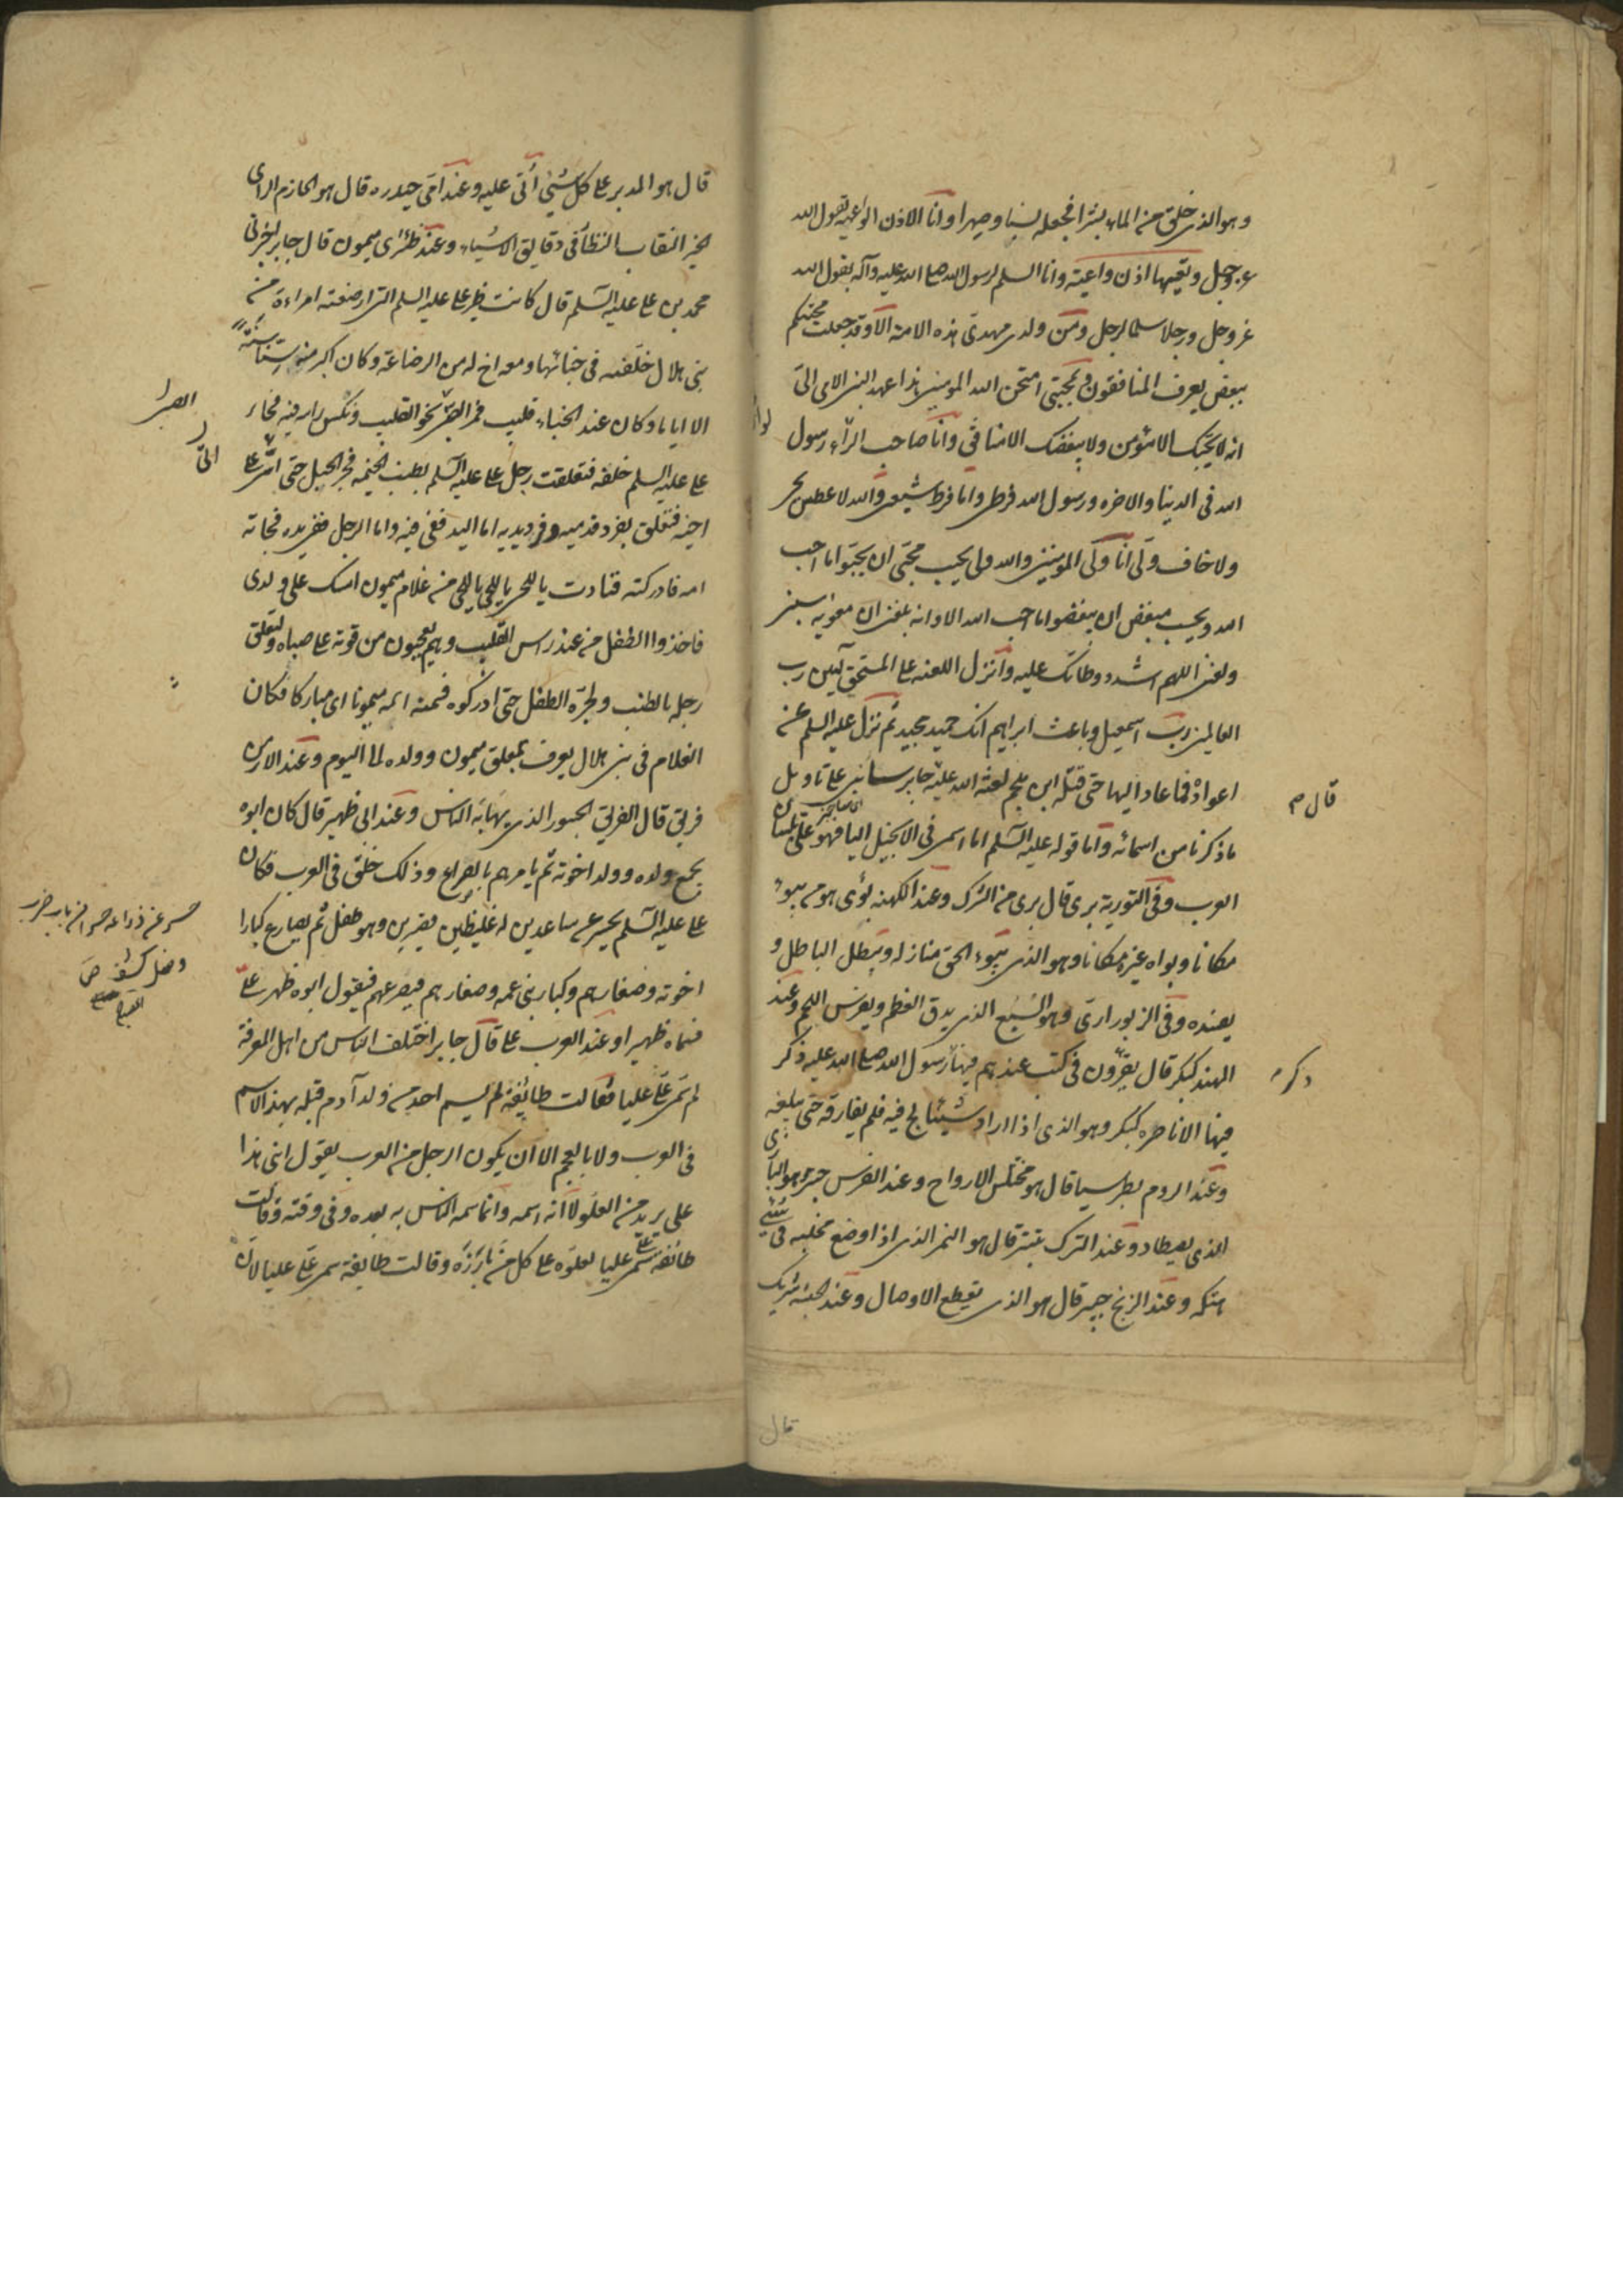 وهو الذى خلق من الماء بشرا فجعله نسبا وصهرا وانا الاذن الواعيه يقول الله
عز وجل وتعيها اذن واعية وانا السلم لرسول الله صلى الله عليه وآله يقول الله
عز وجل ورجلا سلما لرجل ومن ولدى مهدى هذه الامة الا وقد جعلت محنتكم
ببغضى يعرف المنافقون وبمحبتى امتحن الله المومنين هذا عهد النبى الامى الى
انه لا يحبك الا مؤمن ولا يبغضك الا منافق وانا صاحب لواء رسول
الله فى الدنيا والاخره ورسول الله فرطى وانا فرط شيعتى والله لا عطش محبى
ولا خاف وليى انا ولى المومنين والله وليى يحب محبى ان يحبوا ما احب
الله ويحب مبغضى ان يبغضوا ما احب الله الا وانه بلغنى ان معويه سبنى
ولعننى اللهم اشدد وطاتك عليه وانزل اللعنه على المستحق آمين رب
العالمين رب اسمعيل وباعث ابراهيم انك حميد مجيد ثم نزل عليه السلم عن
اعواده فما عاد اليها حتى قتله ابن ملجم لعنه الله عليه جابر سناتى على تاويل
قال م
ما ذكرنا من اسمائه واما قوله عليه السلم انا اسمى فى الانجيل اليا فهو على بلسان
العرب وفى التورية برى قال برى من الشرك وعند الكهنه بوى هو من يبوء
مكانا وبواه غيره مكانا وهو الذى يبوء الحق منازله ويبطل الباطل و
يفسده وفى الزبور ارى وهو السبع الذى يدق العظم ويفرس اللحم وعند
الهند كبكر قال يقرؤن فى كتب عندهم فيها رسول الله صلى الله عليه وذكر
ذكر
فيها ان ناصره كبكر وهو الذى اذا اراد شيئا لج فيه فلم يفارقه حتى يبلغه
وعند الروم بطرسيا قال هو مختلس الارواح وعند الفرس حبتر وهو البازى
الذى يصطاد وعند الترك بتير قال هو النمر الذى اذا وضع مخلبه فى شئ
هتكه وعند الزنج حيتر قال هو الذى يقطع الاوصال وعند الحبشه بثريك
قال
قال هو المدبر على كل شئ اتى عليه وعند امى حيدره قال هو الحازم الراى
الخبير النقاب النظار فى دقايق الاشياء وعند ظئرى ميمون قال جابر اخبرنى
محمد بن على عليه السلم قال كانت ظئر على عليه السلم التى ارضعته امراءة من
بنى هلال خلفته فى خبائها ومعه اخ له من الرضاعة وكان اكبر منه سنا سنة
الا اياما وكان عند الخباء قليب فمر الصبى نحو القليب ونكس راسه فيه فجاء
الصبى
على عليه السلم خلفه فتعلقت رجل على عليه السلم بطنب الخيمه فجر الحبل حتى اتى على
الى
اخيه فتعلق بفرد قدميه وفرد يديه اما اليد ففى فيه واما الرجل ففى يده فجاته
امه فادركته فنادت يا للحى يا للحى يا للحى من غلام ميمون امسك على ولدى
فاخذوا الطفل من عند راس القليب وهم يعجبون من قوته على صباه ولتعلق
رجله بالطنب ولجره الطفل حتى ادركوه فسمته امه ميمونا اى مباركا فكان
الغلام فى بنى هلال يعرف بمعلق ميمون وولده الى اليوم وعند الارمن
فريق قال الفريق الجسور الذى يهابه الناس وعند ابى ظهير قال كان ابوه
يجمع ولده وولد اخوته ثم يامرهم بالصراع وذلك خلق فى العرب فكان
على عليه السلم يحسر عن ساعدين له غليظين قصيرين وهو طفل ثم يصارع كبار
حسر عن ذراعه حسرا من باب ضرب
وقتل كشف ص
اخوته وصغارهم وكبار بنى عمه وصغارهم فيصرعهم فيقول ابوه ظهر على
فسماه ظهيرا وعند العرب على قال جابر اختلف الناس من اهل المعرفة
لم سمى على عليا فقالت طايفة لم يسم احد من ولد آدم قبله بهذا الاسم
فى العرب ولا بالعجم الا ان يكون الرجل من العرب يقول ابنى هذا
على يريد من العلو لا انه اسمه وانما سمى الناس به بعده وفى وقته وقالت
طائفة سمى على عليا لعلوه على كل من بارزه وقالت طايفة سمى على عليا لان